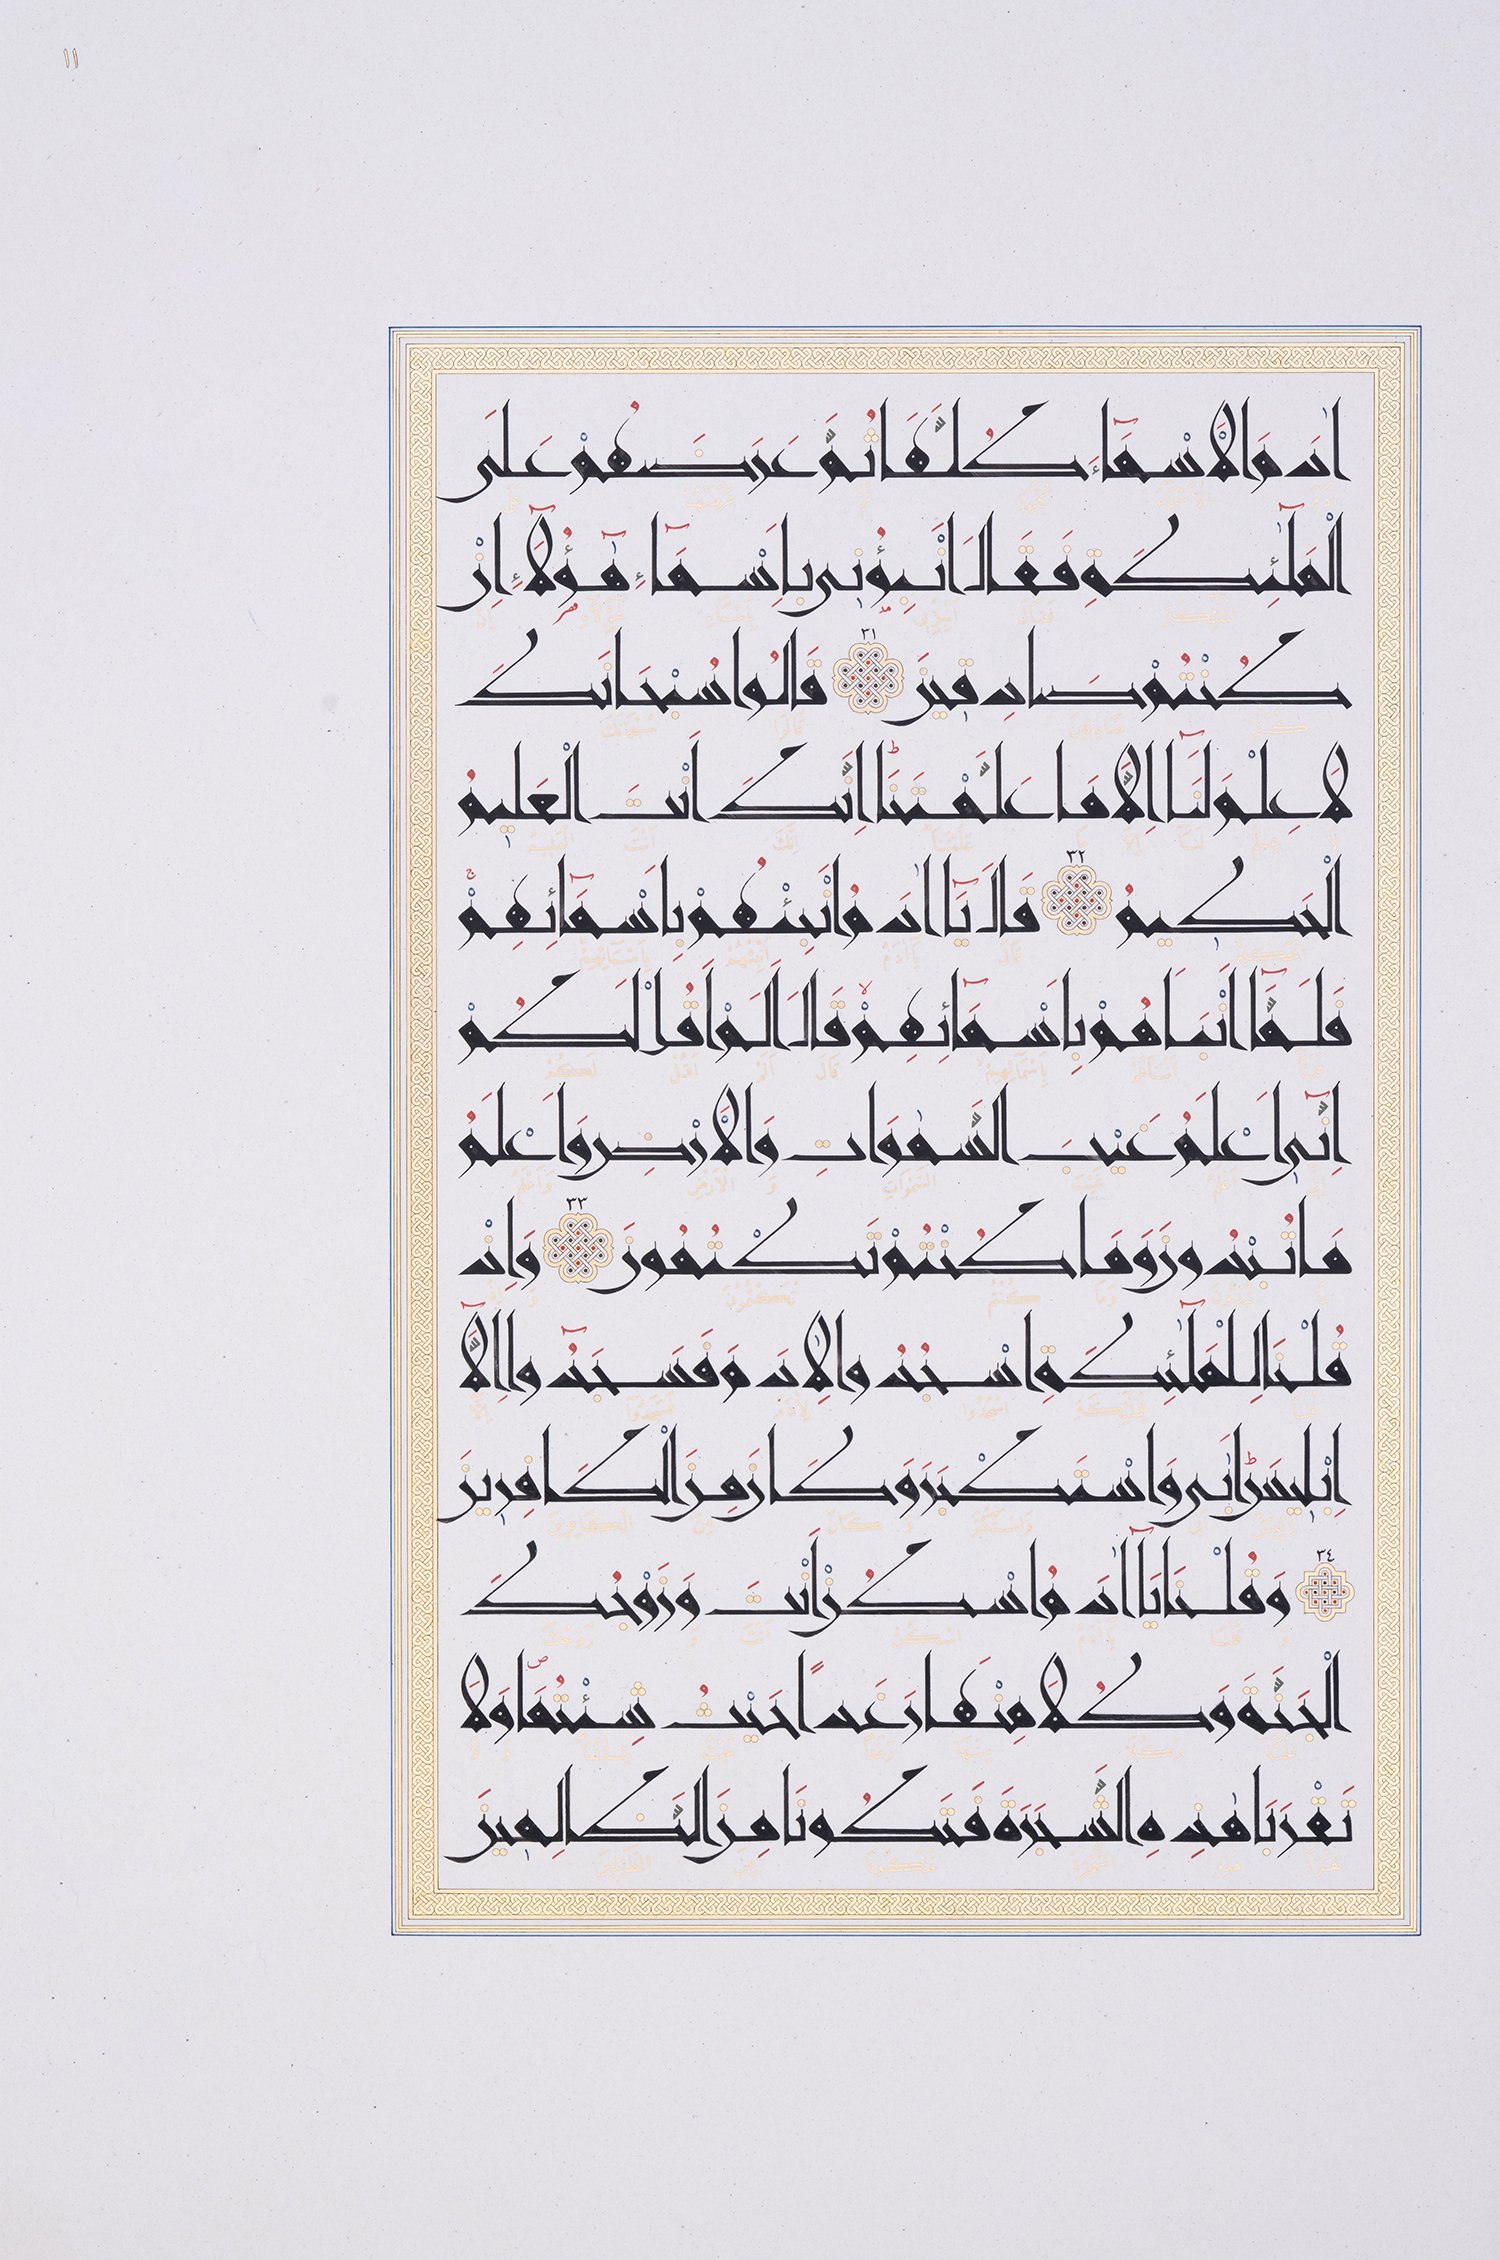 ١١
اٰدَمَ الْاَسْمَآءَ كُلَّهَا ثُمَّ عَرَضَهُمْ عَلَى
الْمَلٰٓئِكَةِ فَقَالَ اَنْبِؤُ۫نِي بِاَسْمَآءِ هٰٓؤُلَآءِ اِنْ
كُنْتُمْ صَادِقِينَ ٣١ قَالُوا سُبْحَانَكَ
لَا عِلْمَ لَنَآ اِلَّا مَا عَلَّمْتَنَا اِنَّكَ اَنْتَ الْعَلِيمُ
الْحَكِيمُ ٣٢ قَالَ يَآ اٰدَمُ اَنْبِئْهُمْ بِاَسْمَآئِهِمْ
فَلَمَّآ اَنْبَاَهُمْ بِاَسْمَآئِهِمْ قَالَ اَلَمْ اَقُلْ لَكُمْ
اِنِّيٓ اَعْلَمُ غَيْبَ السَّمٰوَاتِ وَالْاَرْضِ وَاَعْلَمُ
مَا تُبْدُونَ وَمَا كُنْتُمْ تَكْتُمُونَ ٣٣ وَاِذْ
قُلْنَا لِلْمَلٰٓئِكَةِ اسْجُدُوا لِاٰدَمَ فَسَجَدُوٓا اِلَّآ
اِبْلِيسَ اَبٰى وَاسْتَكْبَرَ وَكَانَ مِنَ الْكَافِرِينَ
٣٤ وَقُلْنَا يَآ اٰدَمُ اسْكُنْ اَنْتَ وَزَوْجُكَ
الْجَنَّةَ وَكُلَا مِنْهَا رَغَدًا حَيْثُ شِئْتُمَا وَلَا
تَقْرَبَا هٰذِهِ الشَّجَرَةَ فَتَكُونَا مِنَ الظَّالِمِينَ